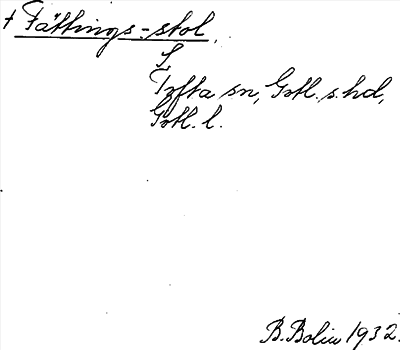 + Fättings-stol.
S.
Tofta sn, Gotl. s. hd,
Gotl. l.
B. Bolin 1932.